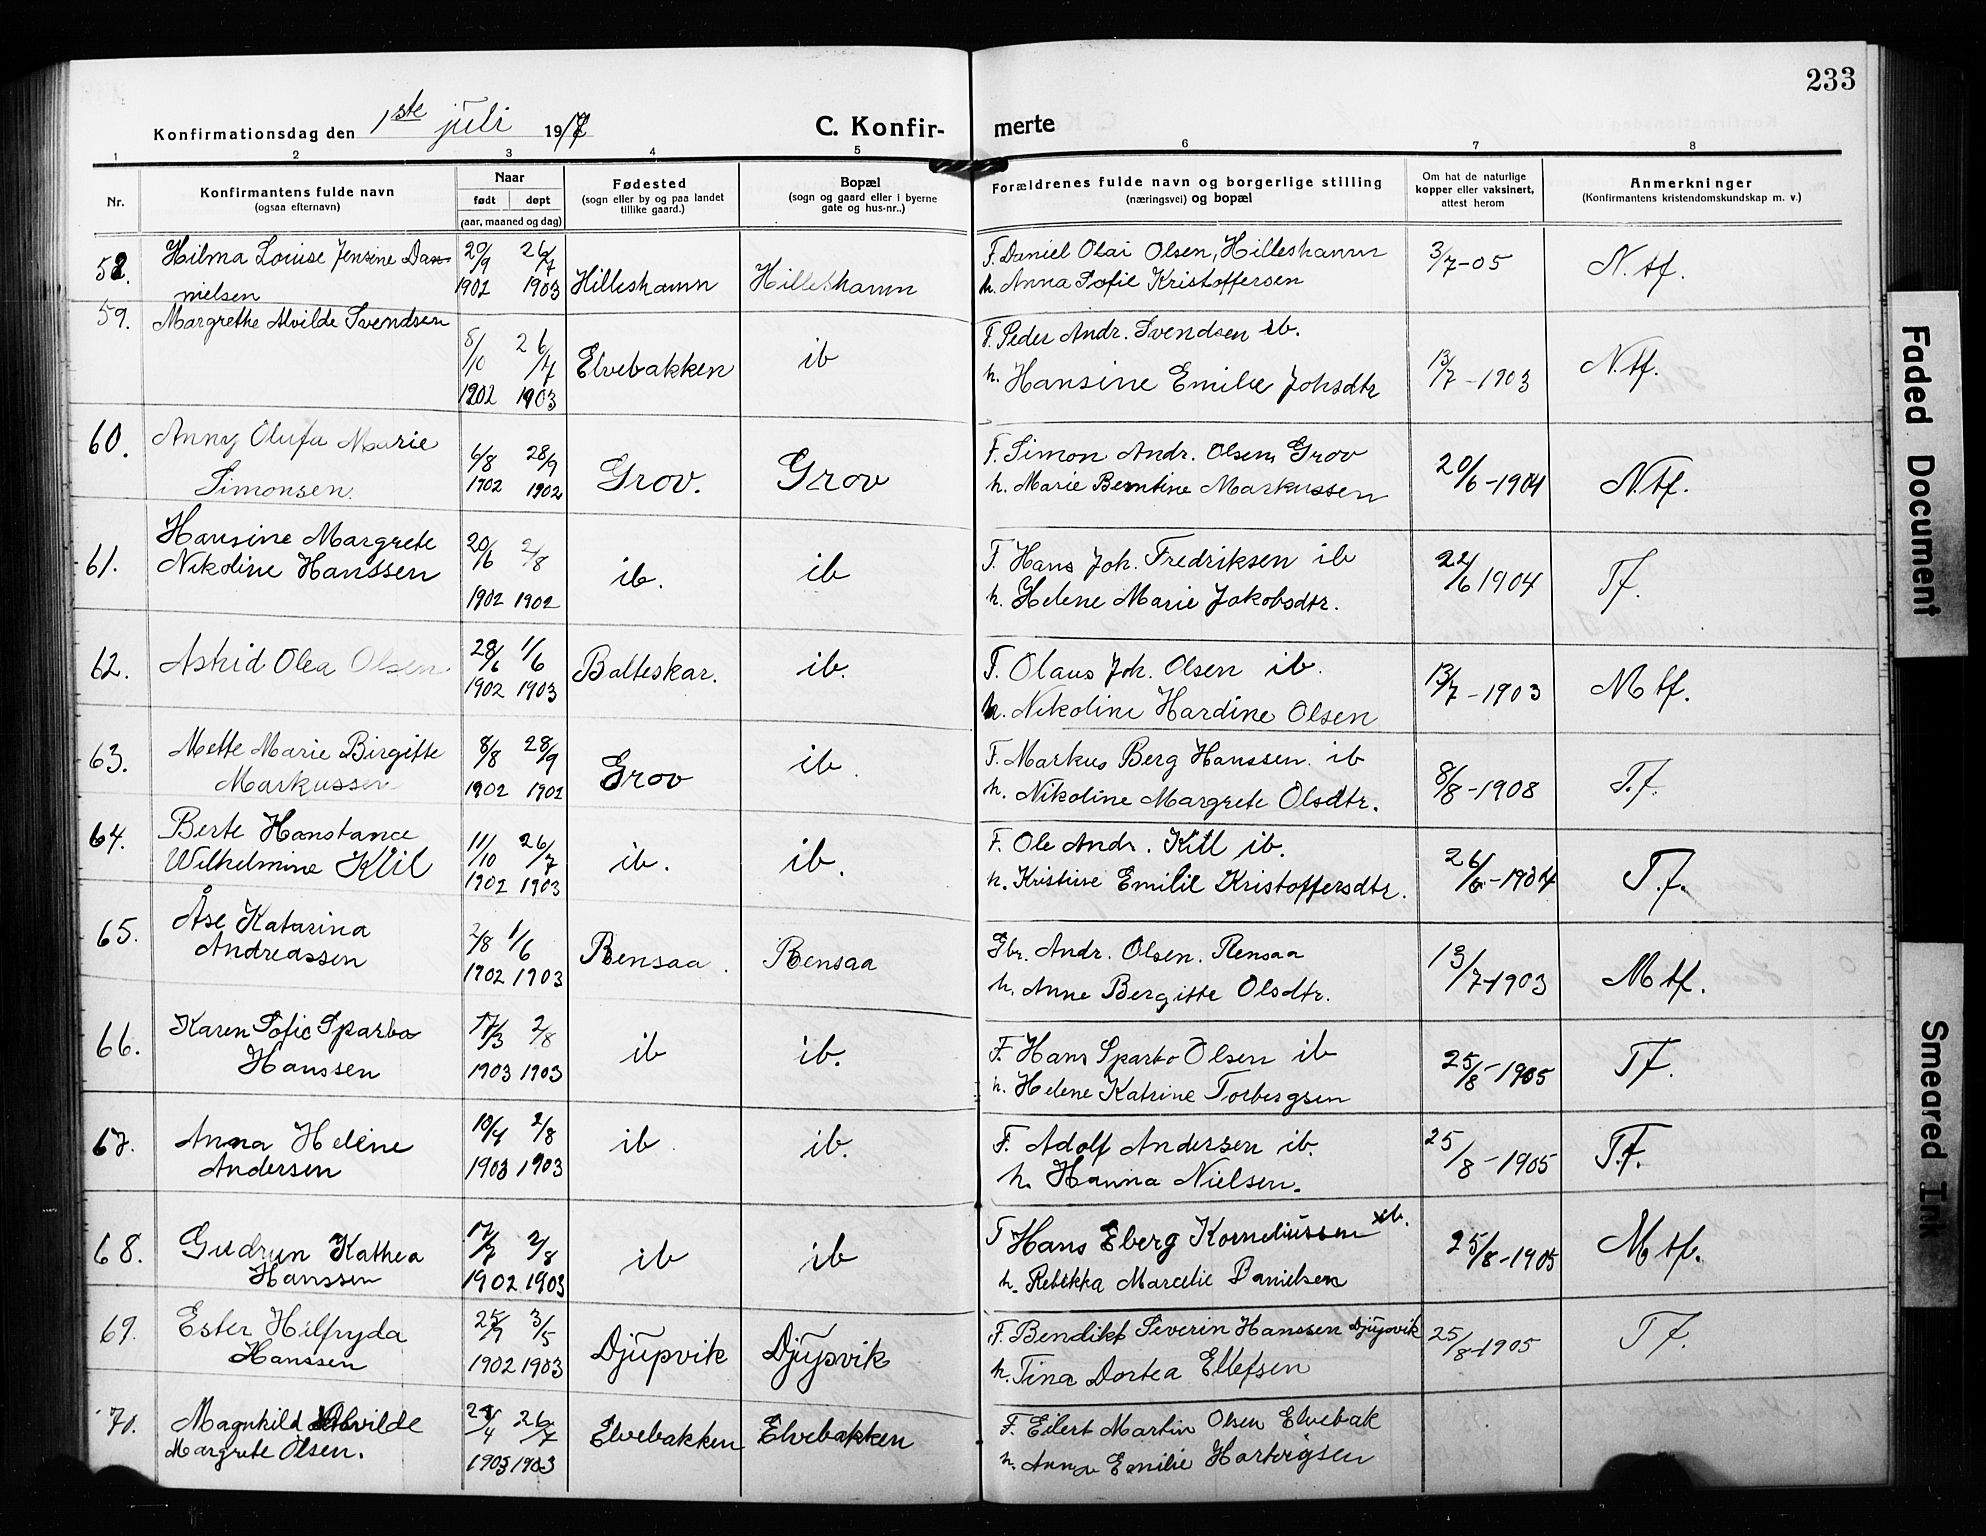 233
Konfirmationsdag den 1ste juli 1917
C. Konfir- merte
1 2 3 4 5 6 7 8
Nr.
Konfirmantens fulde navn
(ogsaa efternavn)
Naar
født døpt
(aar, maaned og dag)
Fødested
(sogn eller by og paa landet
tillike gaard.)
Bopæl
(sogn og gaard eller i byerne
gate og hus-nr..)
Forældrenes fulde navn og borgerlige stilling
(næringsvei) og bopæl
Om hat de naturlige
kopper eller vaksinert,
attest herom
Anmerkninger
(Konfirmantens kristendomskundskap m. v.)
58. Hilma Louise Jensine Dan-
nielsen
20/9 26/7
1902 1903
Hilleshamn Hilleshamn
F. Daniel Olai Olsen, Hilleshamn
h. Anna Sofie Kristoffersen
3/7-05 N. tf.
59. Margrethe Alvilde Svendsen
8/10 26/7
1902 1903
Elvebakken ib
F. Peder Andr. Svendsen ib.
h. Hansine Emilie Johsdtr
13/7-1903 N. tf.
60. Anny Olufa Marie
Simonsen.
6/8 28/9
1902 1902
Grov. Grov
F. Simon Andr. Olsen, Grov
h. Marie Berntine Markussen
20/6-1904 N. tf.
61. Hansine Margrete
Nikoline Hanssen
20/6 2/8
1902 1902
ib. ib
F. Hans Joh. Fredriksen ib
h. Helene Marie Jakobsdtr.
22/6 1904 Tf.
62. Astrid Olea Olsen
28/6 1/6
1902 1903
Balteskar. ib.
F. Olaus Joh. Olsen ib.
h. Nikoline Hardine Olsen
13/7-1903 M tf.
63. Mette Marie Birgitte
Markussen
8/8 28/9
1902 1902
Grov ib.
F. Markus Berg Hanssen. ib
h. Nikoline Margrete Olsdtr.
8/8-1908 T.f.
64. Berte Konstance
Wilhelmine Kiil
11/10 26/7
1902 1903
ib. ib.
F. Ole Andr. Kiil ib.
h. Kristine Emilie Kristoffersdtr.
26/6-1904 T.f.
65. Åse Katarina
Andreassen
2/8 1/6
1902 1903
Rensaa. Rensaa
Gbr. Andr. Olsen. Rensaa
h. Anne Bergitte Olsdtr.
13/7-1903 M tf.
66. Karen Sofie Sparbo
Hanssen
17/3 2/8
1903 1903
ib ib.
F. Hans Sparbo Olsen ib
h. Helene Katrine Torbergsen
25/8-1905 Tf.
67. Anna Helene
Andersen
10/4 2/8
1903 1903
ib ib.
F. Adolf Andersen ib.
h. Hanna Nielsen.
25/8-1905 T.f.
68. Gudrun Kathea
Hanssen
17/7 2/8
1902 1903
ib ib
F Hans Eberg Korneliussen ib.
h. Rebekka Marcelie Danielsen
25/8-1905 M tf.
69. Ester Hilfryda
Hanssen
25/9 3/5
1902 1903
Djupvik Djupvik
F. Bendikt Severin Hanssen Djupvik
h. Tina Dortea Ellefsen
25/8-1905 T f.
70. Magnhild Alvilde
Margrete Olsen.
28/4 26/7
1903 1903
Elvebakken Elvebakken
F. Eilert Martin Olsen Elvebak
h. Anna Emilie Hartvigsen
Faded Document
Smeared Ink